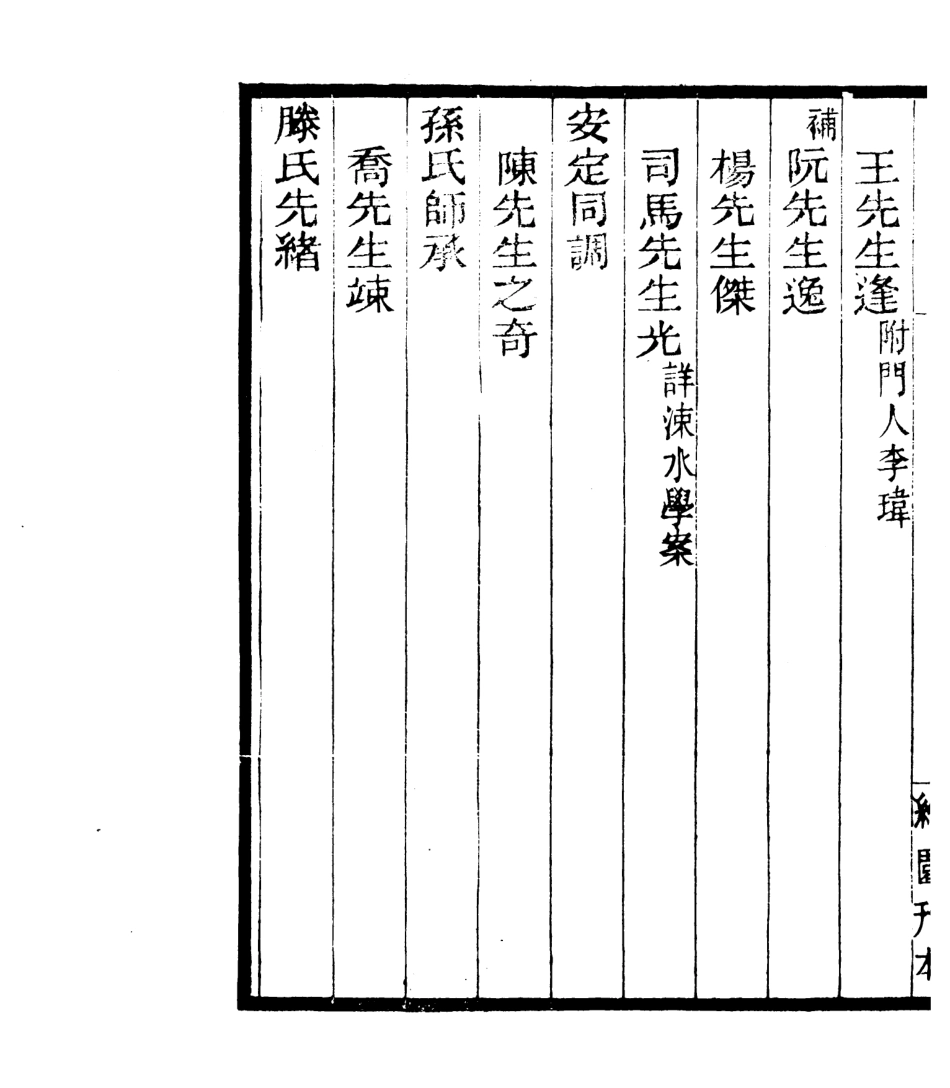 王先生逢附門人李瑋
補阮先生逸
楊先生傑
司馬先生光詳涑水學案
安定同調
陳先生之奇
孫氏師承
喬先生竦
滕氏先緒
約園刊本